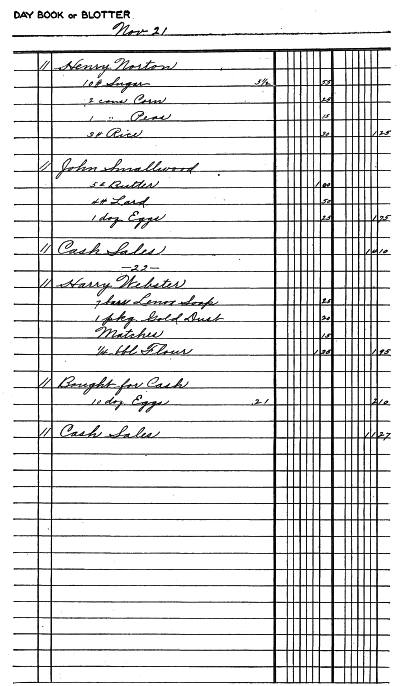 DAY BOOK or BLOTTER
Nov 21
11 Henry Norton
10# Sugar 5½ 55
2 cans Corn 25
1 " Peas 15
3# Rice 30 1 25
11 John Smallwood
5# Butter 1 00
4# Lard 50
1 doz Eggs 25 1 75
11 Cash Sales 14 10
—22—
11 Harry Webster
7 bars Lenox Soap 25
1 pkg. Gold Dust 20
Matches 15
¼ bbl Flour 1 35 1 95
11 Bought for Cash
10 doz Eggs 21 2 10
11 Cash Sales 11 27